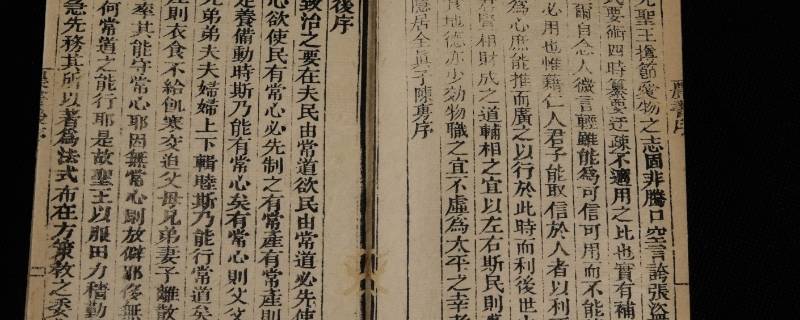 農書序
聖王撙節愛物之志固非騰口空言誇張盜
民要術四時纂要迂疎不適用之比也實有補
爾自念人微言輕雖能為可信可用而不能
必用也惟藉仁人君子能取信於人者以利
為心庶能推而廣之以行於此時而利後世
財成之道輔相之宜以左右斯民則
地德亦少効物職之宜不虛為太平之幸
隱居全真子陳旉序
後序
致治之要在夫民由常道欲民由常道必先使
心欲使民有常心必先制之有常產有常產則
足養備動時斯乃能有常心矣有常心則父父
兄弟弟夫夫婦婦上下輯睦斯乃能行常道矣
則衣食不給飢寒交迫父母兄弟妻子離散
率其能守常心耶因無常心則放僻邪侈無
何常道之能行耶是故聖王以服田力穡勤
急先務其所以著為法式布在方策敎之委